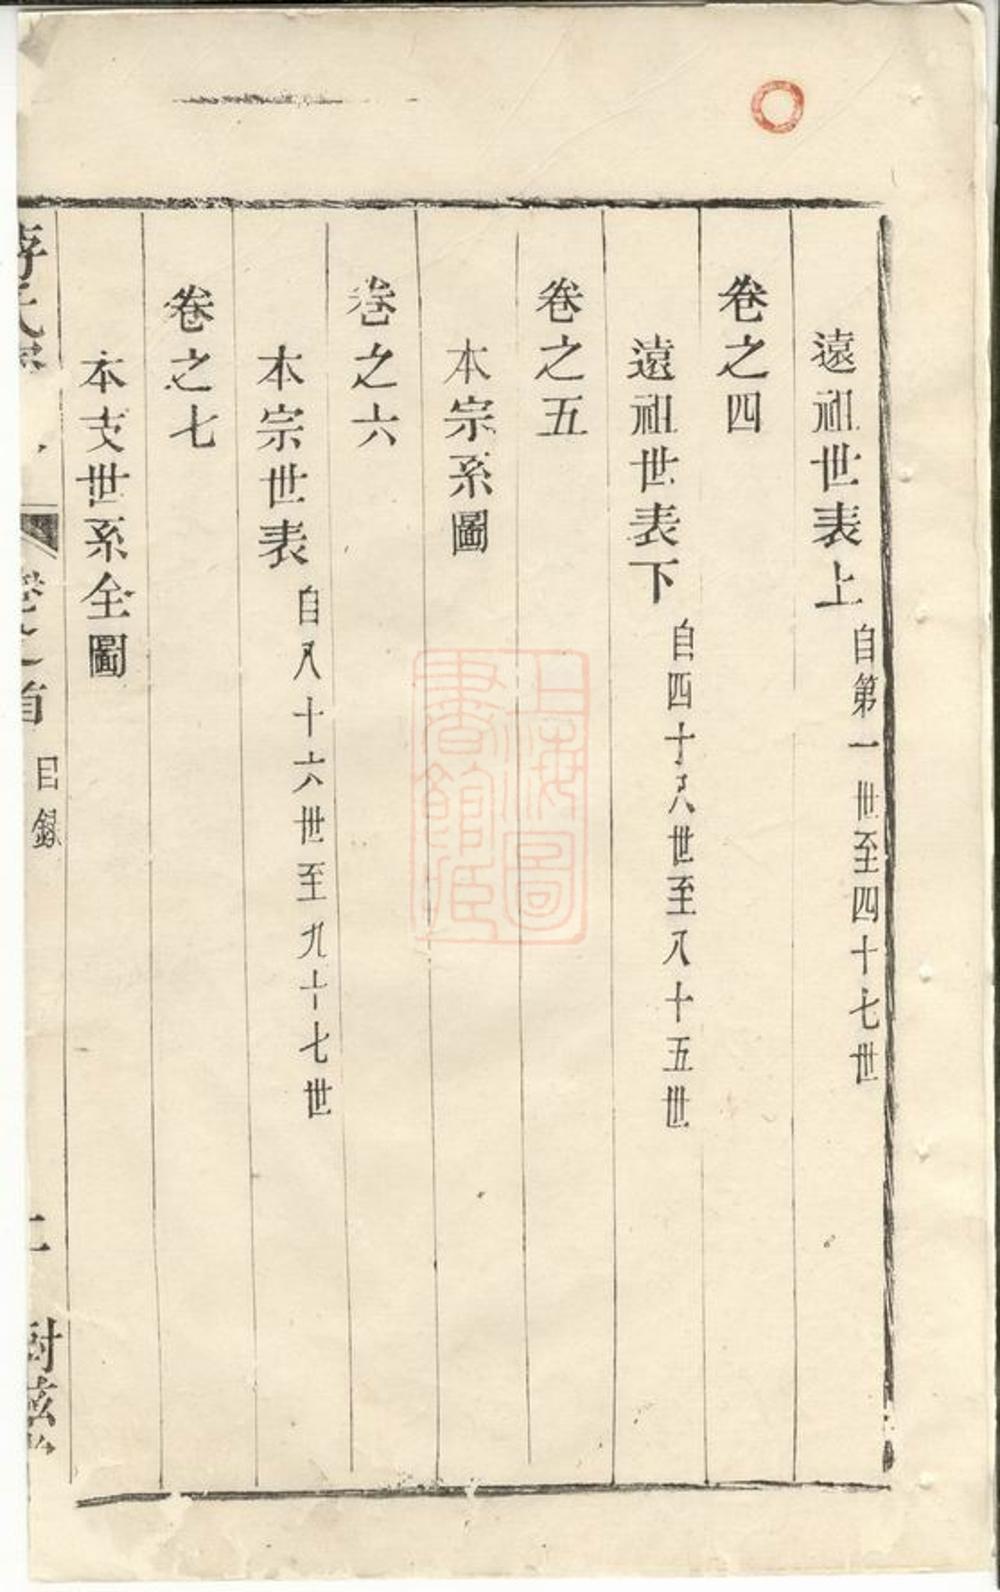 遠祖世表上 自第一世至四十七世
卷之四
遠祖世表下 自四十八世至八十五世
卷之五
本宗系圖
卷之六
本宗世表 自八十六世至九十七世
卷之七
本支世系全圖
卷之首 目錄 二
上海圖書館藏